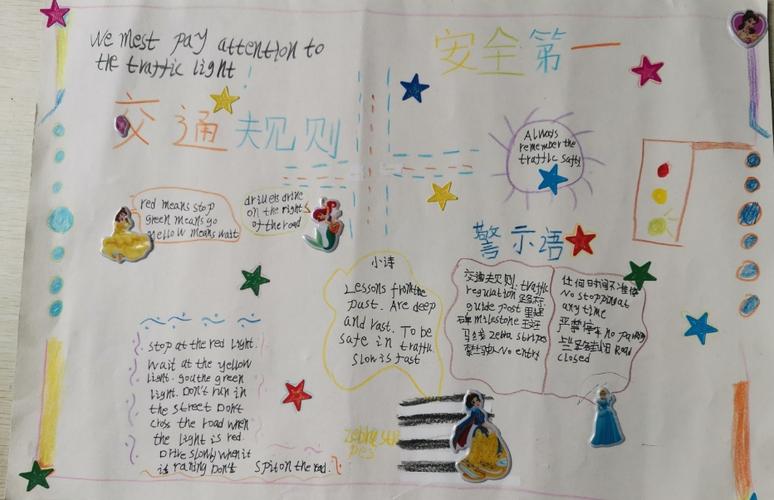 We mest pay attention to
the traffic light
安全第一
交通规则
Always
remember the
traffic safty
red means stop
green means go
yellow means wait
drivers drive
on the right
of the road
警示语
小诗
Lessons from the
past. Are deep
and vast. To be
safe in traffic
slow is fast
交通规则: traffic
regulation 路标
guide post 里程
碑 milestone 斑
马线 zebra stripes
禁止驶入 No entry
任何时间不准停
No stopping at
any time
严禁停车 no parking
Road
closed
stop at the red light.
Wait at the yellow
light. go the green
light. Don't run in
the street Don't
cross the road when
the light is red.
Drive slowly when it
is raning Don't spit on the
zebra stri
pes